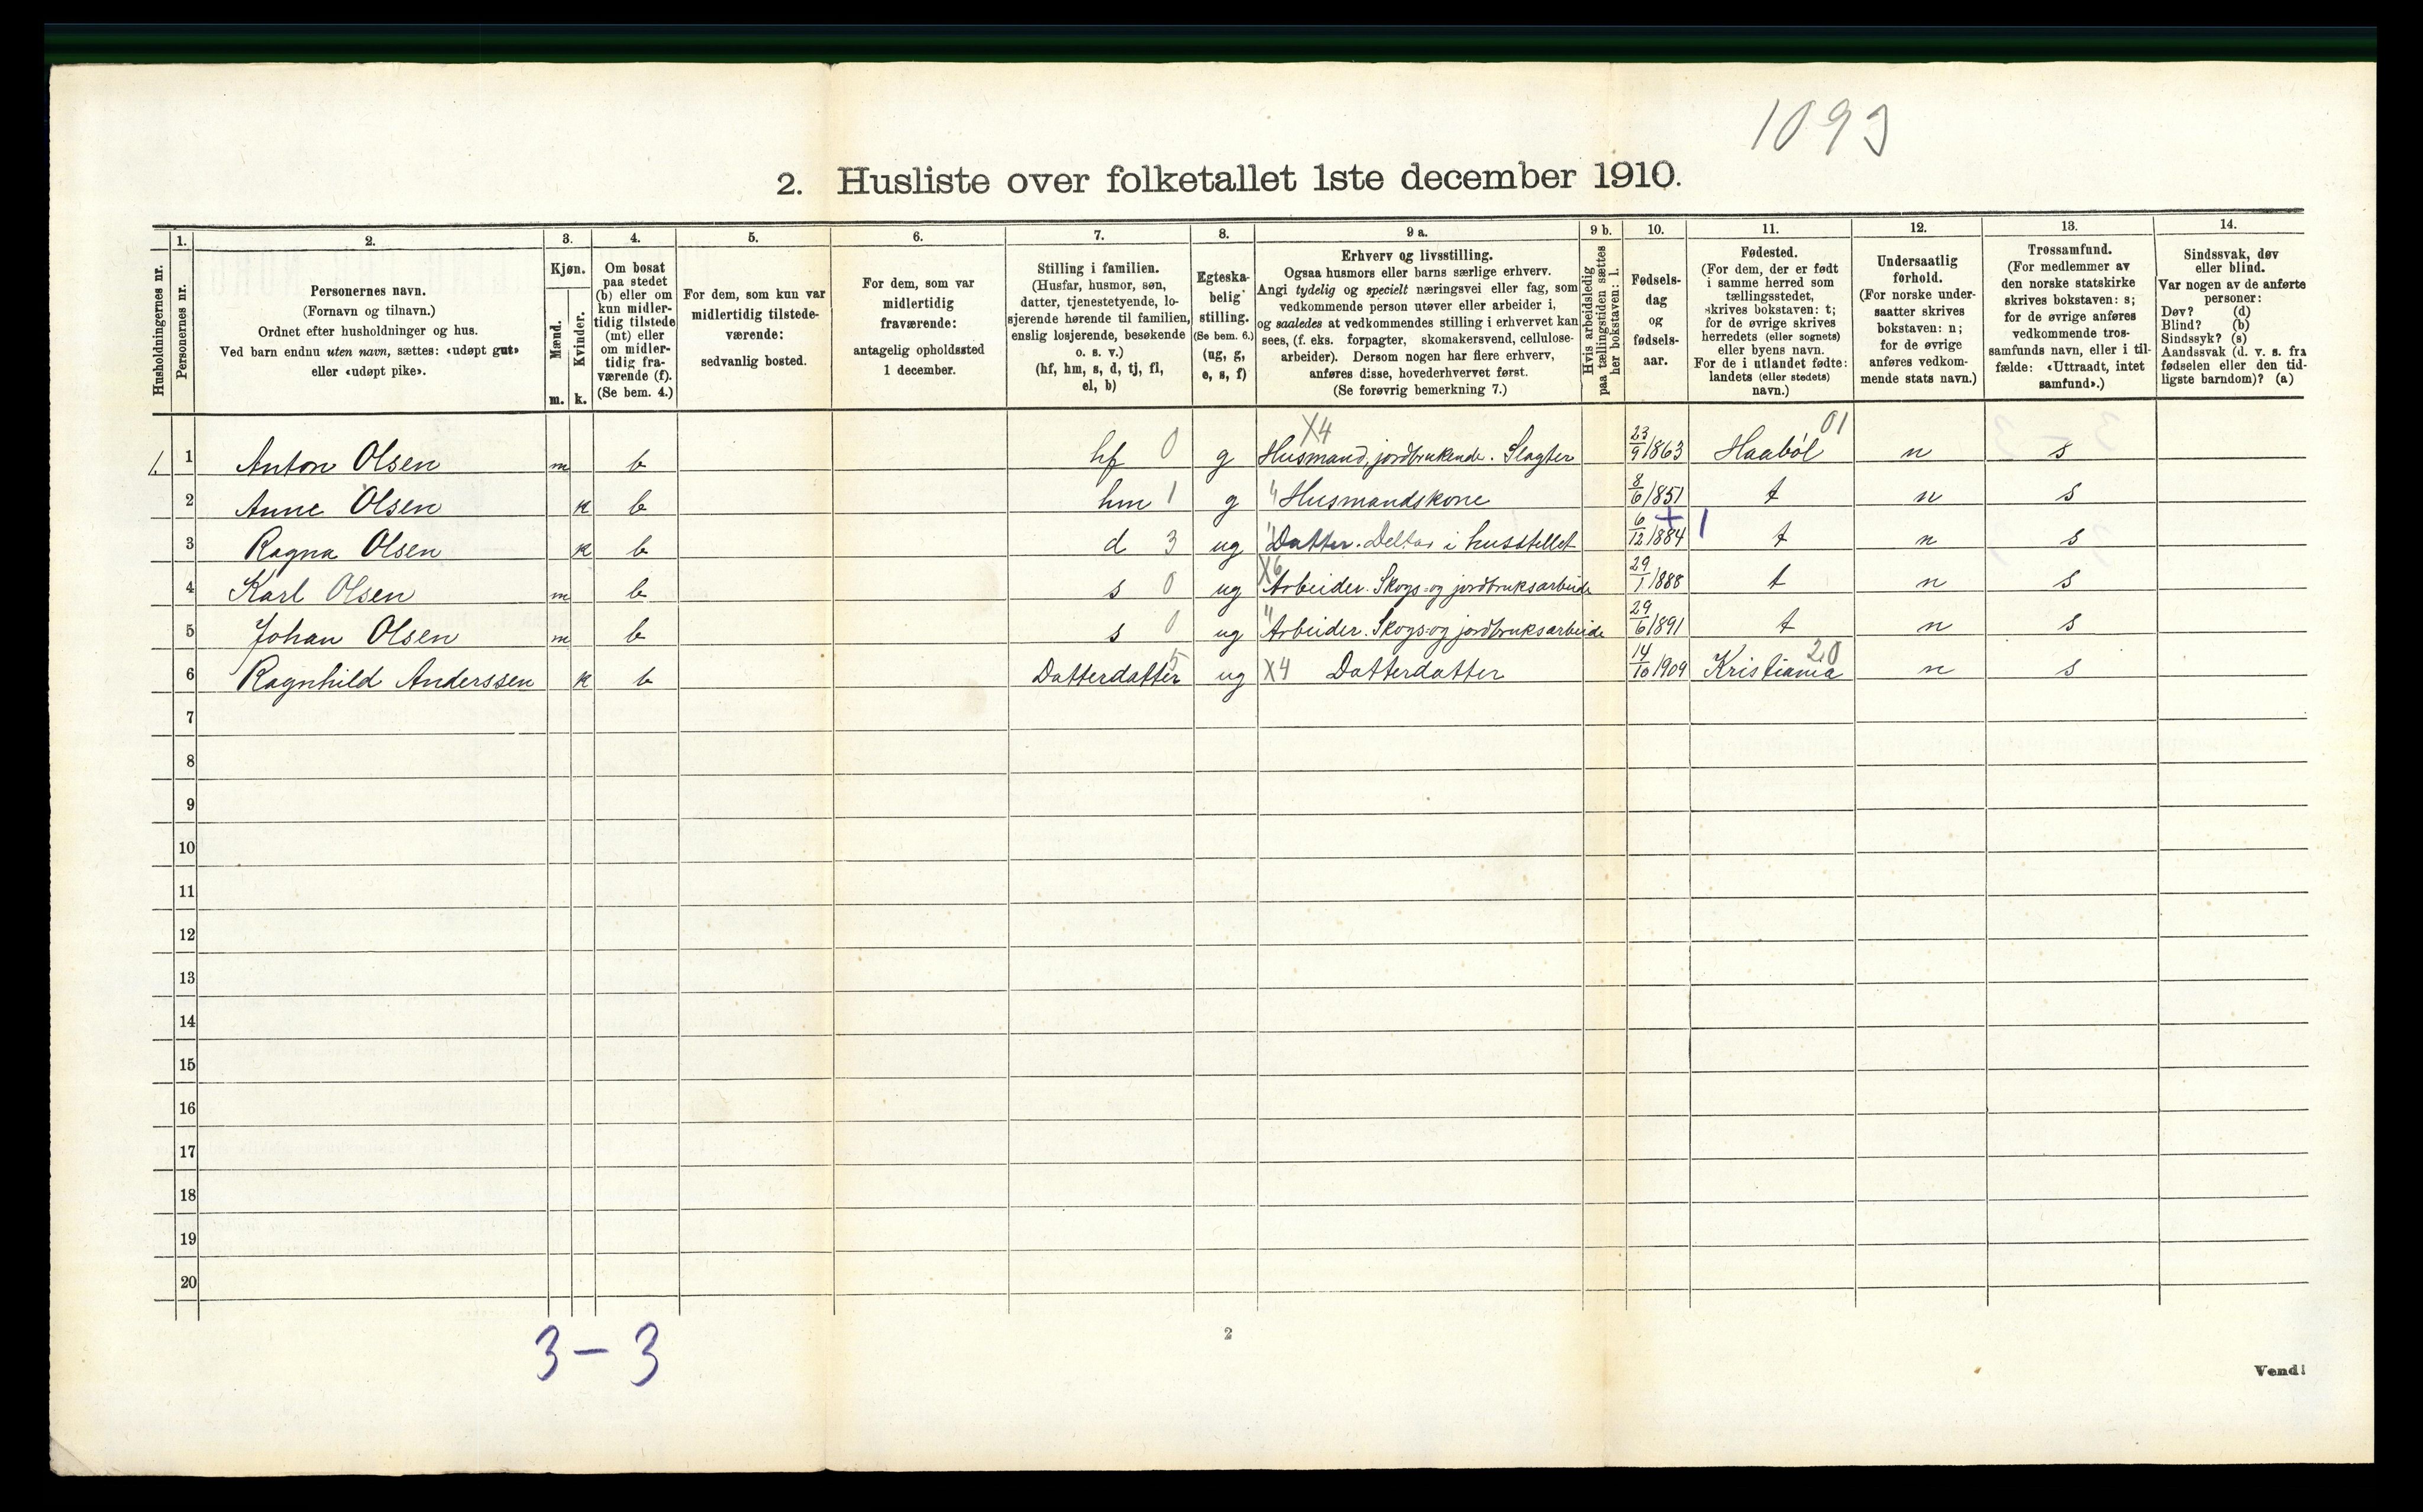 1093
2. Husliste over folketallet 1ste december 1910.
Husholdningernes nr.
1.
Personernes nr.
2.
Personernes navn.
(Fornavn og tilnavn.)
Ordnet efter husholdninger og hus.
Ved barn endnu uten navn, sættes: «udøpt gut»
eller «udøpt pike».
3.
Kjøn.
Mænd.
Kvinder.
m. k.
4.
Om bosat
paa stedet
(b) eller om
kun midler-
tidig tilstede
(mt) eller
om midler-
tidig fra-
værende (f).
(Se bem. 4.)
5.
For dem, som kun var
midlertidig tilstede-
værende:
sedvanlig bosted.
6.
For dem, som var
midlertidig
fraværende:
antagelig opholdssted
1 december.
7.
Stilling i familien.
(Husfar, husmor, søn,
datter, tjenestetyende, lo-
sjerende hørende til familien,
enslig losjerende, besøkende
o. s. v.)
(hf, hm, s, d, tj, fl,
el, b)
8.
Egteska-
belig
stilling.
(Se bem. 6.)
(ug, g,
e, s, f)
9 a.
Erhverv og livsstilling.
Ogsaa husmors eller barns særlige erhverv.
Angi tydelig og specielt næringsvei eller fag, som
vedkommende person utøver eller arbeider i,
og saaledes at vedkommendes stilling i erhvervet kan
sees, (f. eks. forpagter, skomakersvend, cellulose-
arbeider). Dersom nogen har flere erhverv,
anføres disse, hovederhvervet først.
(Se forøvrig bemerkning 7.)
9 b.
Hvis arbeidsledig
paa tællingstiden sættes
her bokstaven: l.
10.
Fødsels-
dag
og
fødsels-
aar.
11.
Fødested.
(For dem, der er født
i samme herred som
tællingsstedet,
skrives bokstaven: t;
for de øvrige skrives
herredets (eller sognets)
eller byens navn.
For de i utlandet fødte:
landets (eller stedets)
navn.)
12.
Undersaatlig
forhold.
(For norske under-
saatter skrives
bokstaven: n;
for de øvrige
anføres vedkom-
mende stats navn.)
13.
Trossamfund.
(For medlemmer av
den norske statskirke
skrives bokstaven: s;
for de øvrige anføres
vedkommende tros-
samfunds navn, eller i til-
fælde: «Uttraadt, intet
samfund».)
14.
Sindssvak, døv
eller blind.
Var nogen av de anførte
personer:
Døv? (d)
Blind? (b)
Sindssyk? (s)
Aandssvak (d. v. s. fra
fødselen eller den tid-
ligste barndom)? (a)
X4 01
1. 1 Anton Olsen m b hf 0 g Husmand, jordbrukende. Slagter 23/9 1863 Haabøl n s
2 Anne Olsen k b hm 1 g " Husmandskone 8/6 1851 t n s
3 Ragna Olsen k b d 3 ug " Datter. Deltar i husstellet 6/12 1884 + 1 t n s
4 Karl Olsen m b s 0 ug X6 Arbeider. Skogs- og jordbruksarbeide 29/1 1888 t n s
5 Johan Olsen m b s 0 ug " Arbeider. Skogs- og jordbruksarbeide 29/6 1891 t n s
6 Ragnhild Anderssen k b Datterdatter 5 ug X4 Datterdatter 14/10 1909 Kristiania 20 n s
7
8
9
10
11
12
13
14
15
16
17
18
19
20
3 - 3
2
Vend!